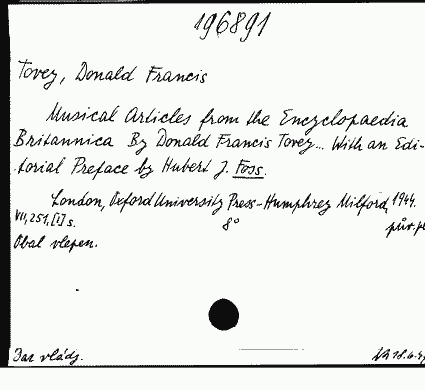 196891
Tovey, Donald Francis
Musical Articles from the Encyclopaedia
Britannica By Donald Francis Tovey... With an Edi-
torial Preface by Hubert J. Foss.
London, Oxford University Press - Humphrey Milford, 1944.
VII, 251, [I] s. 8° pův.
Obal vlepen.
Dar vlády.